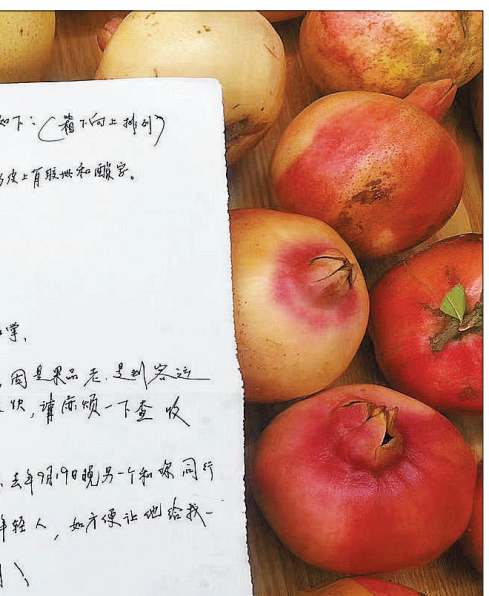 如下：（箱下向上排列）
皮上有 和酸字。
掌、
因是果品 是到客运
快，请麻烦一下查收
去年9月19日晚另一个和你同行
年轻人，如方便让他给找一